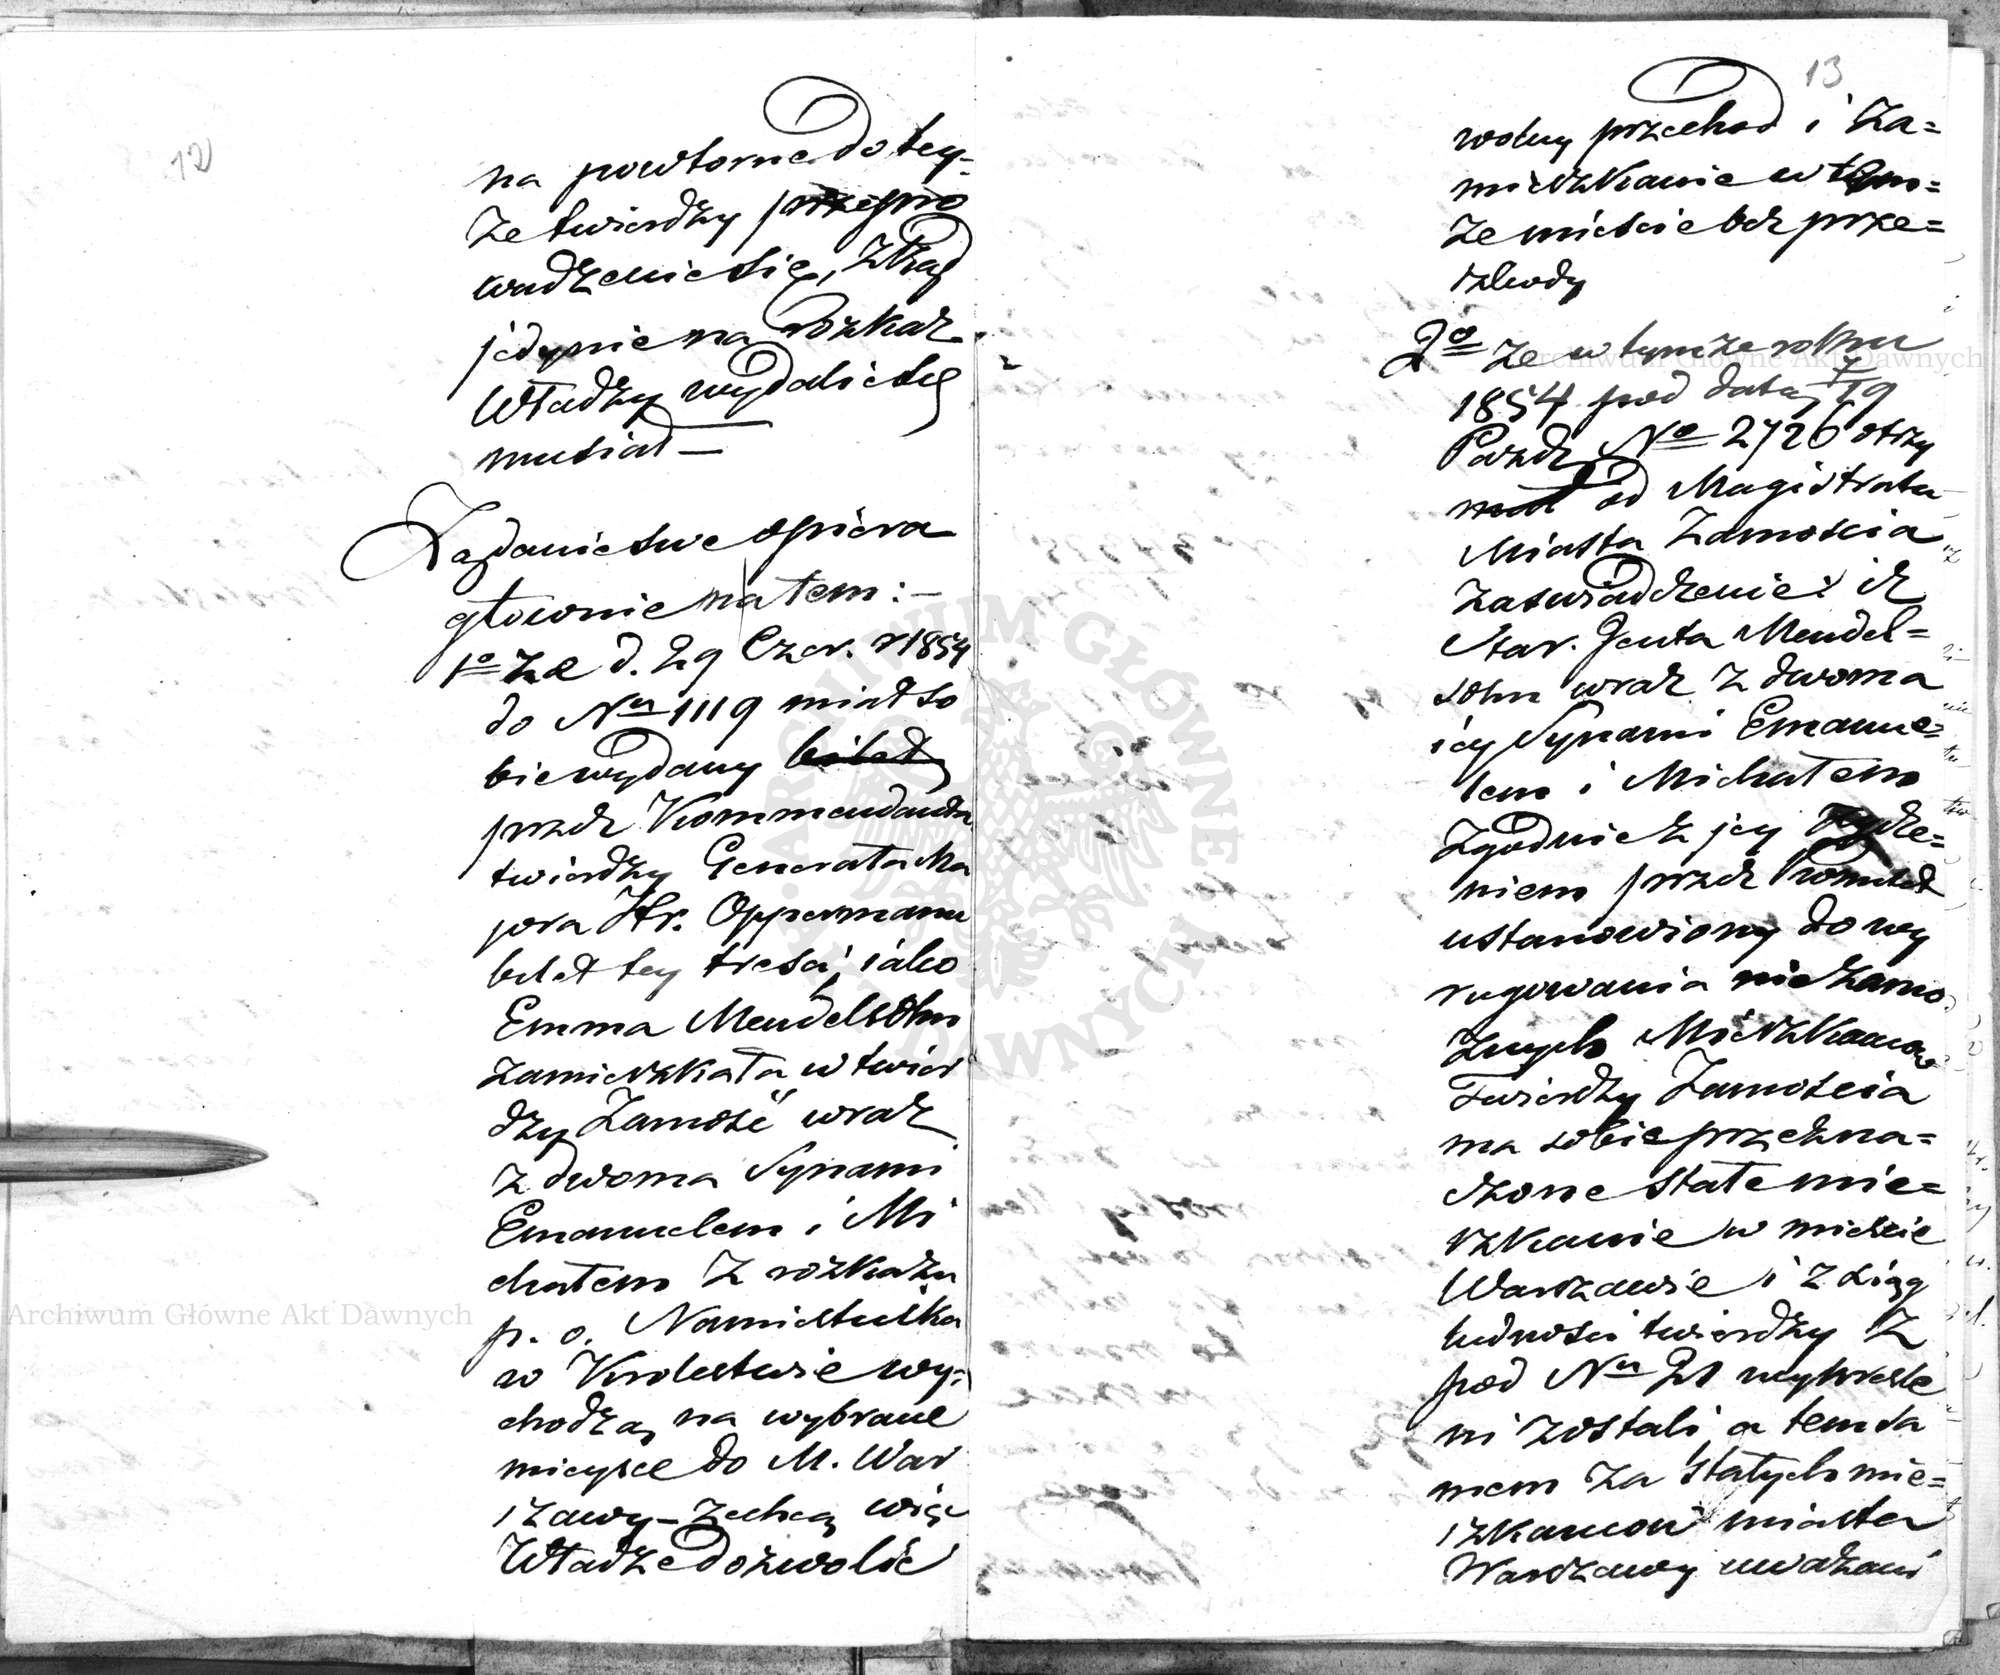 12
na powtorne do tey-
że twierdzy przepro
wadzenie się, zkąd
jedynie na rozkaz
Władzy wydalić się
musiał —
Żądanie swe opiera
głownie na tem: —
1o że d. 29 Czer. r 1854
do Nu 1119 miał so
bie wydany bilet
przez Kommendanta
twierdzy Generała Ma
jora Hr. Oppermann
bilet tey treści, iako
Emma Mendelsohn
zamieszkała w twier
dzy Zamość wraz
z dwoma Synami
Emanuelem i Mi
chałem z rozkazu
p. o. Namiestnika
w Krolestwie wy=
chodzą na wybrane
mieysce do M. War
szawy — zechcą więc
Władze dozwolić
13
wolny przechod i Za=
mieszkanie w tem=
że mieście bez prze=
szkody
2o że w tymże roku
1854 pod datą 7/19
Paźdz. No 2726 otrzy
mał od Magistratu
Miasta Zamościa
Zaświadczenie iż
Star. Genta Mendel=
sohn wraz z dwoma
iey Synami Emanue=
lem i Michałem
zgodnie z jey życze=
niem przez Komitet
ustanowiony do wy
rugowania niezamo
żnych Mieszkancow
Twierdzy Zamościa
ma sobie przezna=
czone stałe mie=
szkanie w mieście
Warszawie i z xiąg
ludności twierdzy z
pod Nu 21 wykreśle
ni zostali, a tem sa
mem za stałych mie=
szkancow miasta
Warszawy uważani
Archiwum Główne Akt Dawnych
Archiwum Główne Akt Dawnych
ARCHIWUM GŁÓWNE AKT DAWNYCH